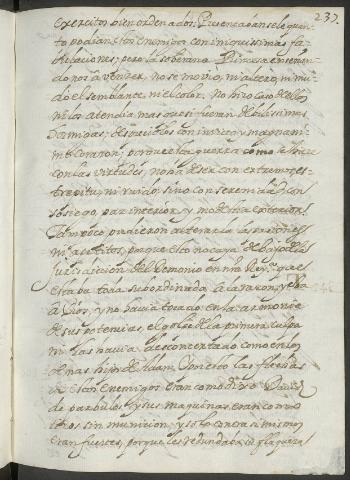 237.
exercitos bien ordenados. Pusieronsele quan-
to podian estos enemigos con iniquissimas fa-
bulaciones; pero la soberana Princesa enseñan-
donos a vencer, no se movio, ni altero, ni mu-
do el semblante, ni el color. No hizo caso dellos
ni los atendia mas que si fueran debilissimas
hormigas; despreciolos con invicto, y magnani-
mo corazon; porque esta guerra como se haze
con las virtudes, no ha de ser con extremos, es-
trepitu, ni ruido, sino con serenidad, con
sosiego, paz interior, y modestia exterior.
Tampoco pudieron alterarla las passiones
ni apetitos, porque esto no caya debajo de la
Jurisdicion del Demonio en nra Reyna, que
estaba toda subordinada a la razon, y esta
a Dios, y no havia tocado en la armonia
de sus potencias, el golpe de la primera culpa
ni las havia desconcertado como en los
demas hijos de Adam. Con esto las flechas
de estos enemigos eran como dixo David
de parbulos, y sus maquinas eran como
tiros sin municion; y solo contra si mismos
eran fuertes, porque les redundaba su flaqueza